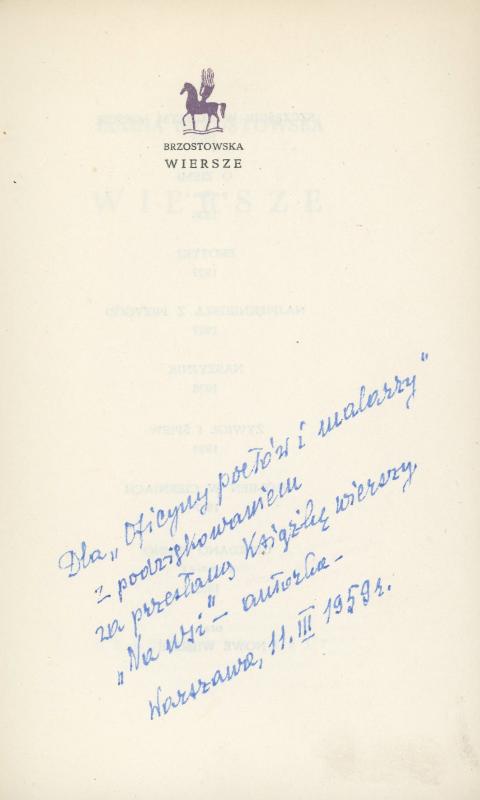 BRZOSTOWSKA
WIERSZE
WIERSZE
Dla „Oficyny poetów i malarzy"
z podziękowaniem
za przesłaną książkę wierszy
„Na wsi" – autorka –
Warszawa, 11. III 1959 r.